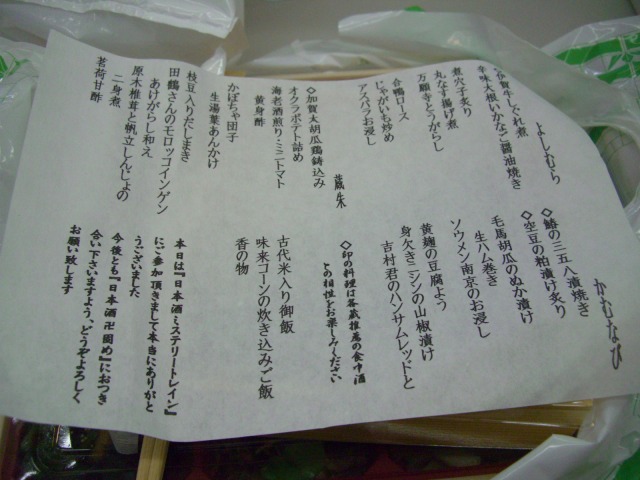 よしむら
煮穴子炙り
丸なす揚げ煮
万願寺とうがらし
合鴨ロース
じゃがいも炒め
アスパラお浸し
蔵朱
◇加賀太胡瓜鶏鋳込み
オクラポテト詰め
海老酒煎りミニトマト
黄身酢
かぼちゃ団子
生湯葉あんかけ
枝豆入りだしまき
田鶴さんのモロッコインゲン
あけがらし和え
原木椎茸と帆立しんじょの
二身煮
茗荷甘酢
かむなび
◇鰆の三五八漬焼き
◇空豆の粕漬け炙り
毛馬胡瓜のぬか漬け
生ハム巻き
ソウメン南京のお浸し
黄麹の豆腐よう
身欠きニシンの山椒漬け
吉村君のハンサムレッドと
◇印の料理は各蔵推薦の食中酒
との相性をお楽しみください
古代米入り御飯
味来コーンの炊き込みご飯
香の物
本日は『日本酒ミステリートレイン』
にご参加頂きまして本当にありがと
うございました
今後とも『日本酒卍固め』におつき
合い下さいますよう、どうぞよろしく
お願い致します